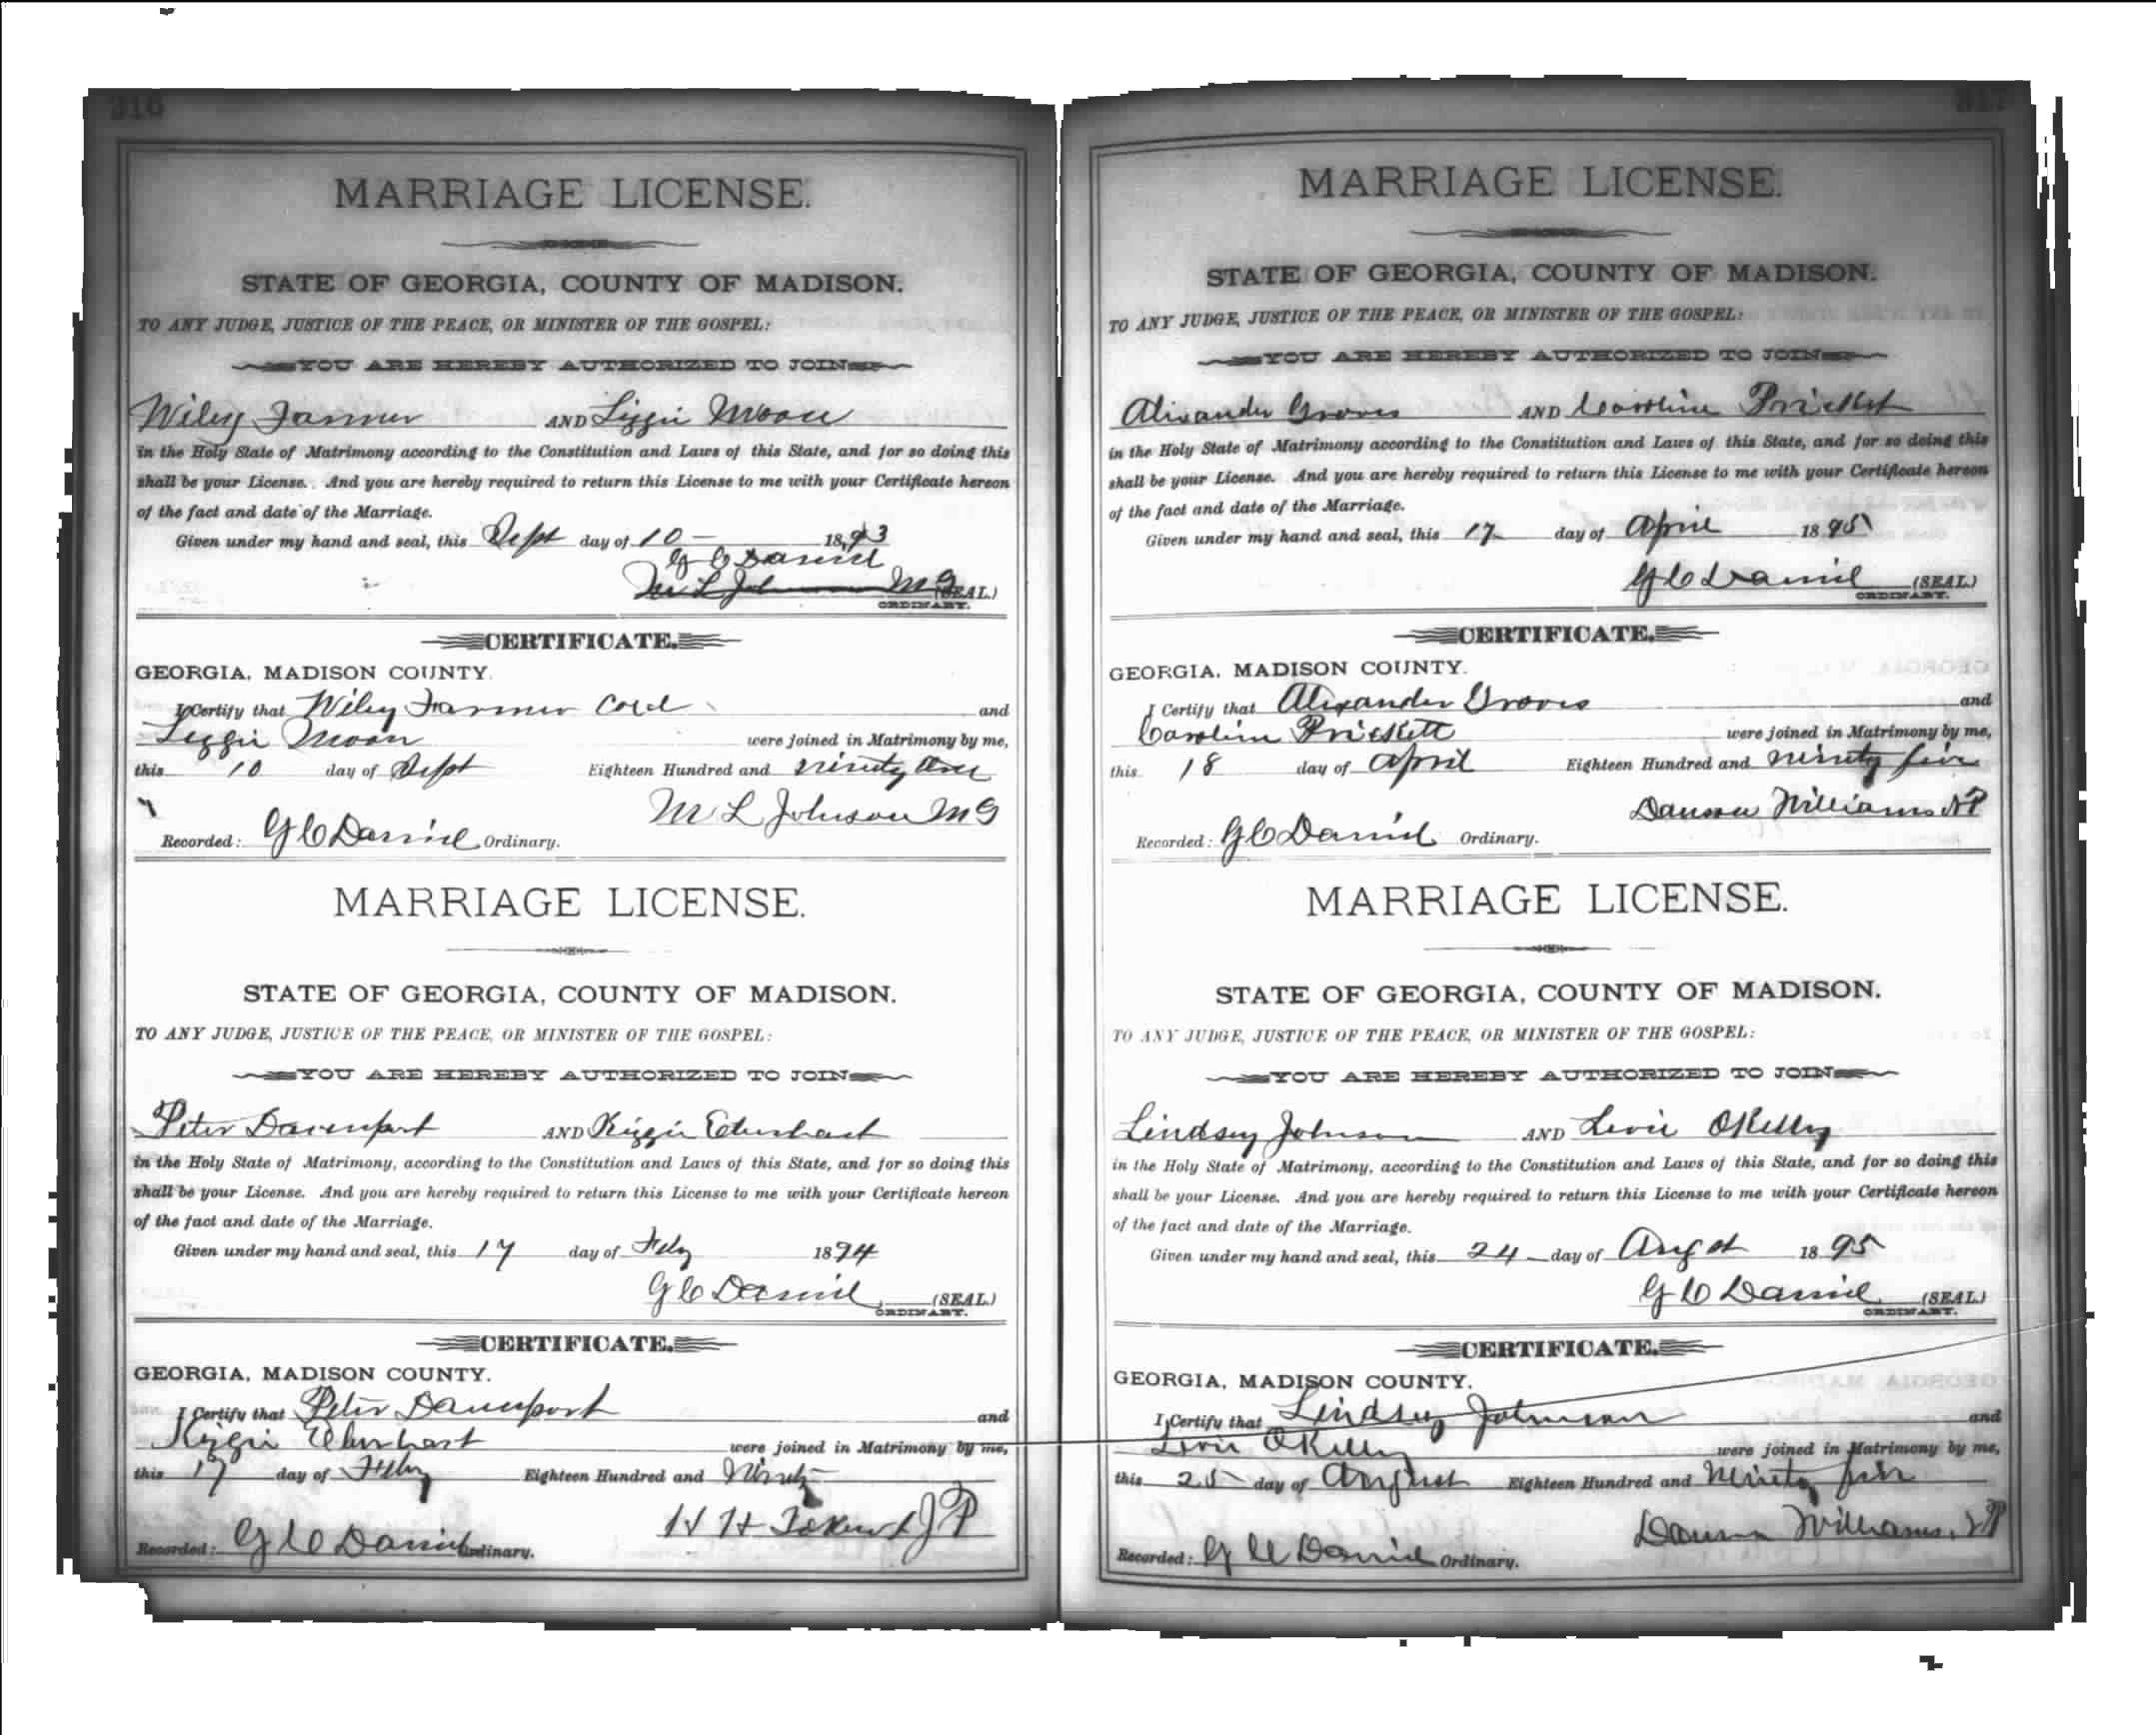 316
MARRIAGE LICENSE.
STATE OF GEORGIA, COUNTY OF MADISON.
TO ANY JUDGE, JUSTICE OF THE PEACE, OR MINISTER OF THE GOSPEL:
YOU ARE HEREBY AUTHORIZED TO JOIN
Wiley Farmer AND Lizzie Moon
in the Holy State of Matrimony according to the Constitution and Laws of this State, and for so doing this
shall be your License. And you are hereby required to return this License to me with your Certificate hereon
of the fact and date of the Marriage.
Given under my hand and seal, this Sept day of 10 - 1893
G C Daniel
M L Johnson M G (SEAL.)
ORDINARY.
CERTIFICATE.
GEORGIA, MADISON COUNTY.
I Certify that Wiley Farmer Cold and
Lizzie Moon were joined in Matrimony by me,
this 10 day of Sept Eighteen Hundred and ninety three
M L Johnson M G
Recorded: G C Daniel Ordinary.
MARRIAGE LICENSE.
STATE OF GEORGIA, COUNTY OF MADISON.
TO ANY JUDGE, JUSTICE OF THE PEACE, OR MINISTER OF THE GOSPEL:
YOU ARE HEREBY AUTHORIZED TO JOIN
Peter Davenport AND Kizzie Eberhart
in the Holy State of Matrimony, according to the Constitution and Laws of this State, and for so doing this
shall be your License. And you are hereby required to return this License to me with your Certificate hereon
of the fact and date of the Marriage.
Given under my hand and seal, this 17 day of Feby 1894
G C Daniel (SEAL.)
ORDINARY.
CERTIFICATE.
GEORGIA, MADISON COUNTY.
I Certify that Peter Davenport and
Kizzie Eberhart were joined in Matrimony by me,
this 17 day of Feby Eighteen Hundred and Ninety
H H J P
Recorded: G C Daniel Ordinary.
MARRIAGE LICENSE.
STATE OF GEORGIA, COUNTY OF MADISON.
TO ANY JUDGE, JUSTICE OF THE PEACE, OR MINISTER OF THE GOSPEL:
YOU ARE HEREBY AUTHORIZED TO JOIN
Alixander Groves AND Caroline Prickett
in the Holy State of Matrimony according to the Constitution and Laws of this State, and for so doing this
shall be your License. And you are hereby required to return this License to me with your Certificate hereon
of the fact and date of the Marriage.
Given under my hand and seal, this 17 day of April 1895
G C Daniel (SEAL.)
ORDINARY.
CERTIFICATE.
GEORGIA, MADISON COUNTY.
I Certify that Alixander Groves and
Caroline Prickett were joined in Matrimony by me,
this 18 day of April Eighteen Hundred and ninety five
Williams NP
Recorded: G C Daniel Ordinary.
MARRIAGE LICENSE.
STATE OF GEORGIA, COUNTY OF MADISON.
TO ANY JUDGE, JUSTICE OF THE PEACE, OR MINISTER OF THE GOSPEL:
YOU ARE HEREBY AUTHORIZED TO JOIN
Lindsey Johnson AND Livie OKelly
in the Holy State of Matrimony, according to the Constitution and Laws of this State, and for so doing this
shall be your License. And you are hereby required to return this License to me with your Certificate hereon
of the fact and date of the Marriage.
Given under my hand and seal, this 24 day of Augst 1895
G C Daniel (SEAL.)
ORDINARY.
CERTIFICATE.
GEORGIA, MADISON COUNTY.
I Certify that Lindsey Johnson and
Livie OKelly were joined in Matrimony by me,
this 25 day of August Eighteen Hundred and Ninety five
Williams, NP
Recorded: G C Daniel Ordinary.